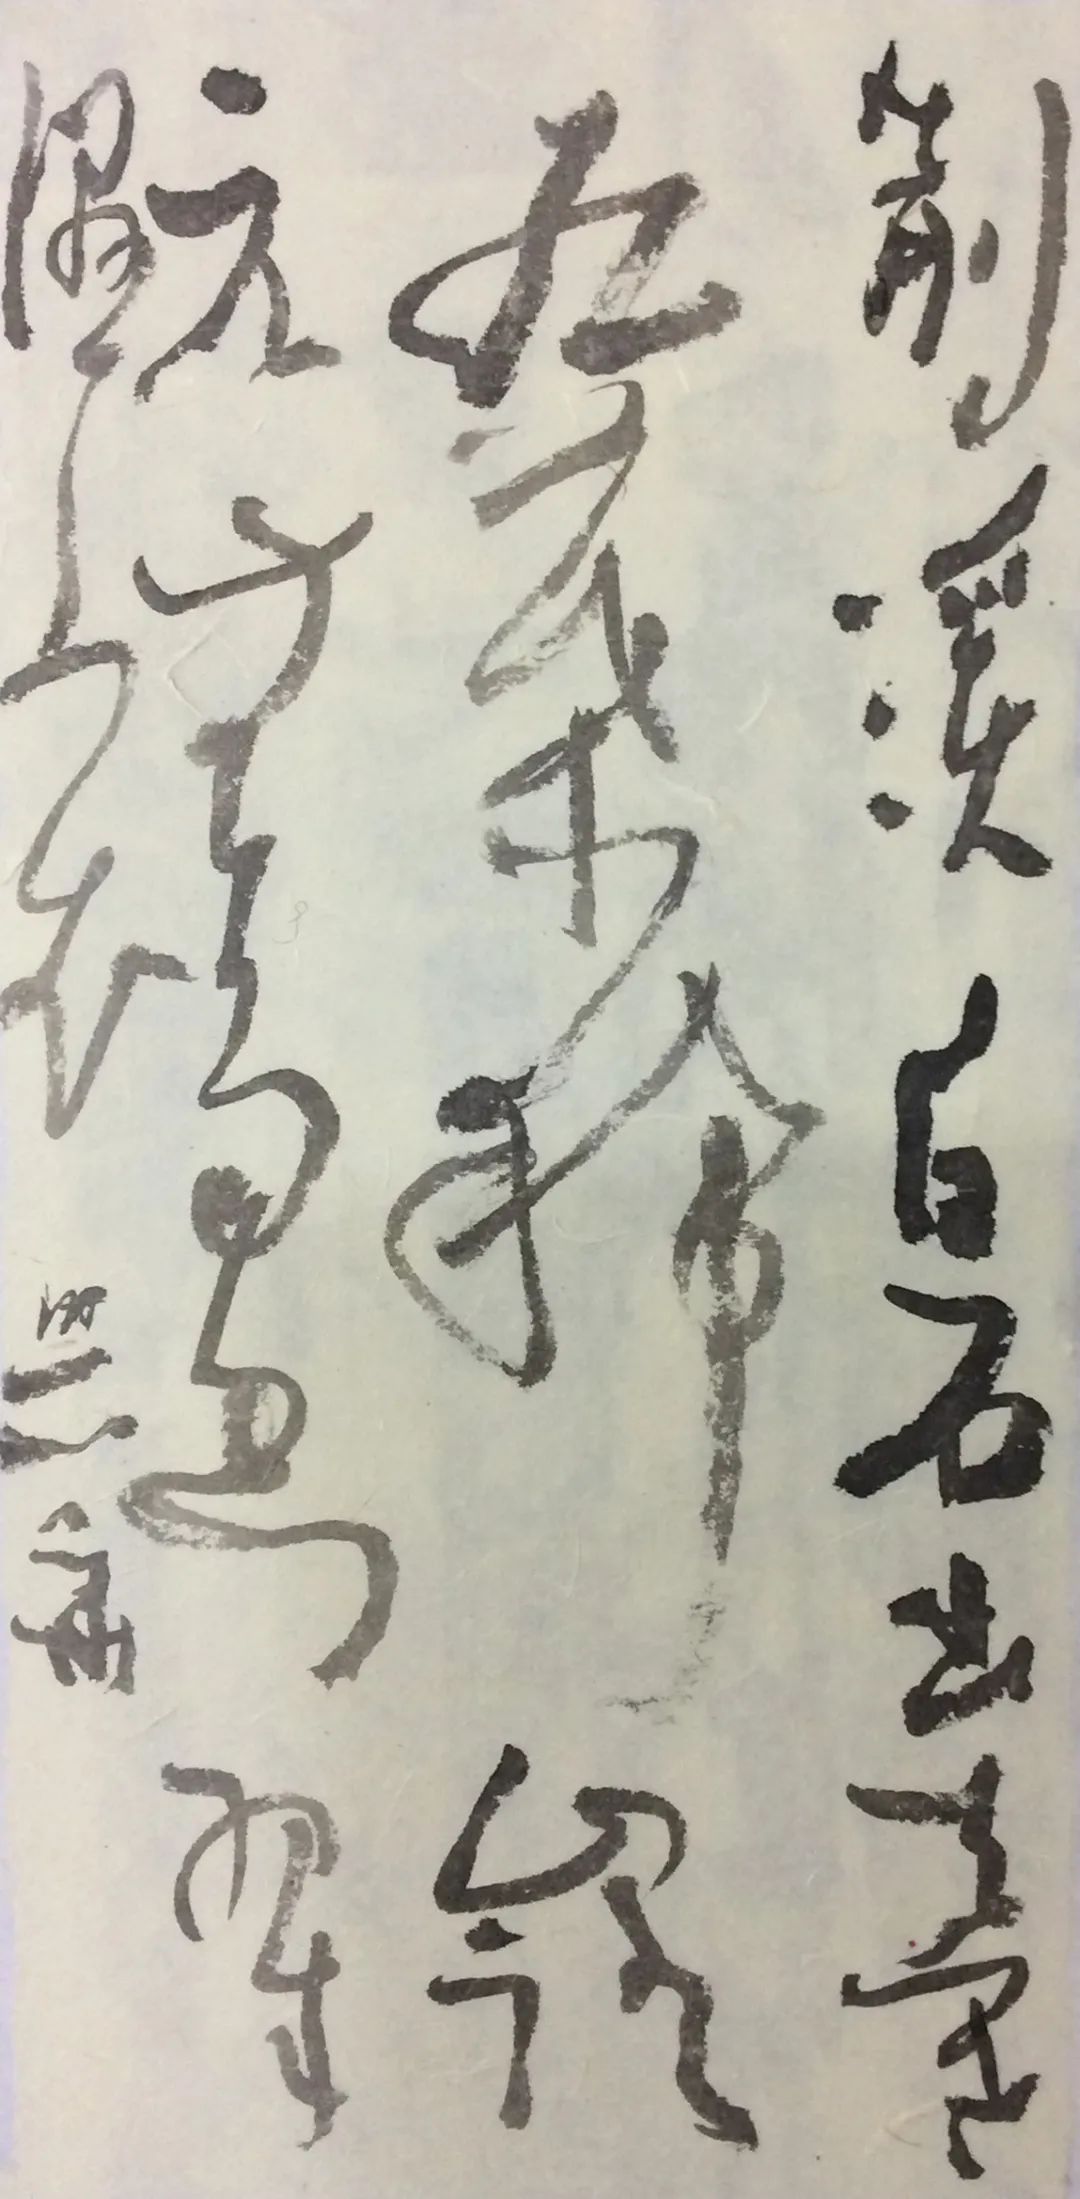 荆溪白石出天寒
紅葉稀山路
元無雨空翠
濕人衣